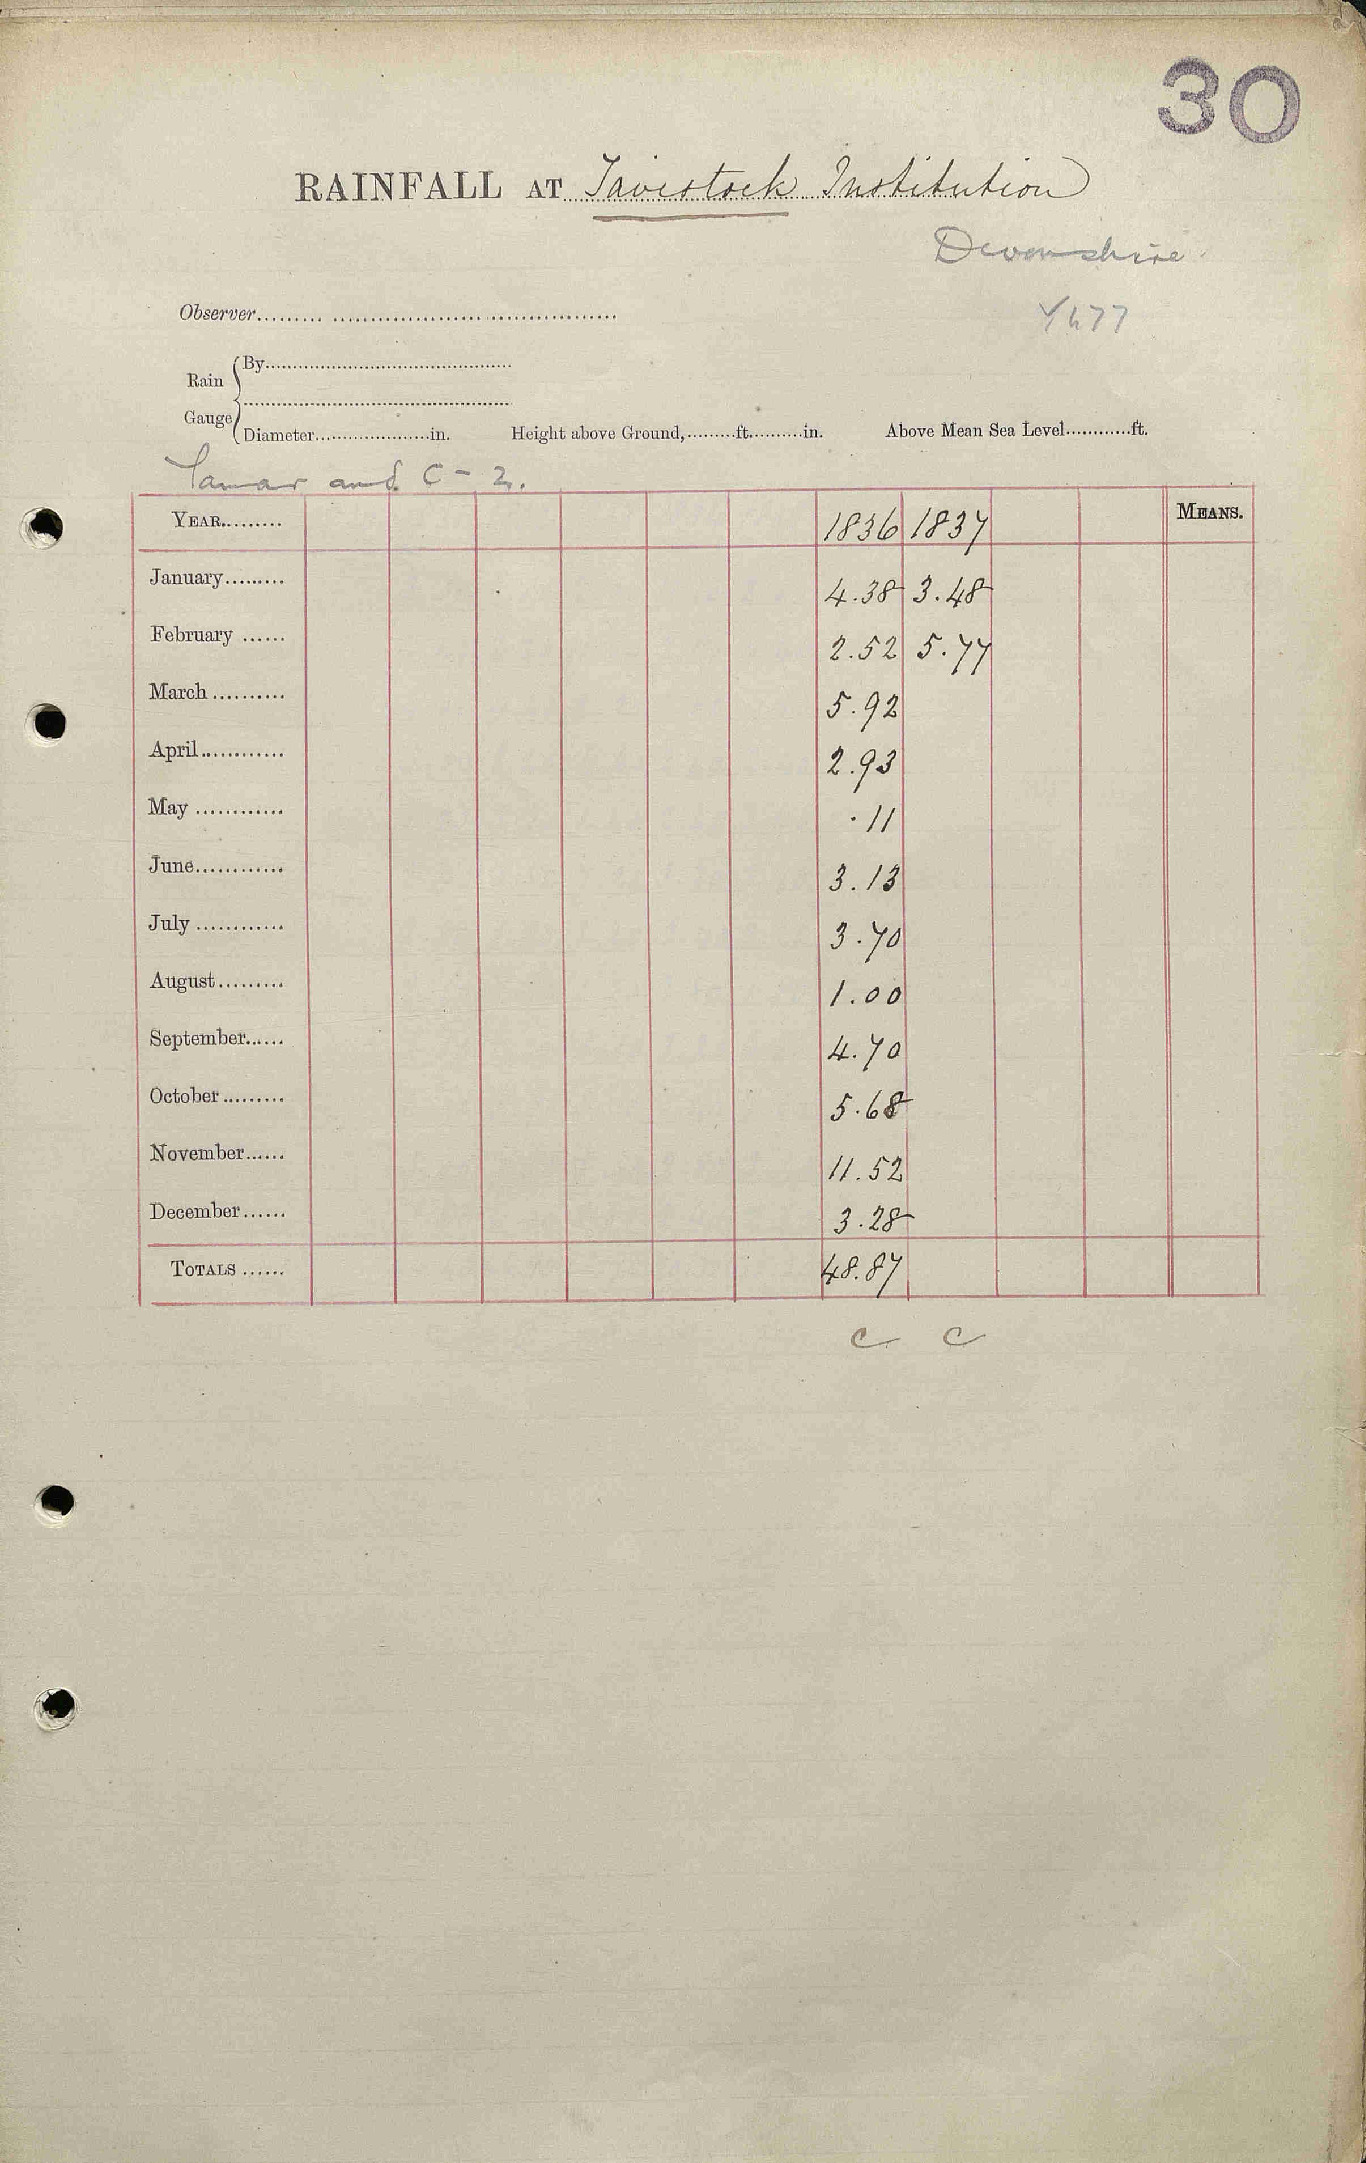 30
RAINFALL AT Tavistock Institution
Devonshire
Observer
Rain Gauge
By
Diameter in. Height above Ground, ft. in. Above Mean Sea Level ft.
Tamar and C-2.
YEAR 1836 1837 MEANS.
January 4.38 3.48
February 2.52 5.77
March 5.92
April 2.93
May .11
June 3.13
July 3.70
August 1.00
September 4.70
October 5.68
November 11.52
December 3.28
TOTALS 48.87
C C